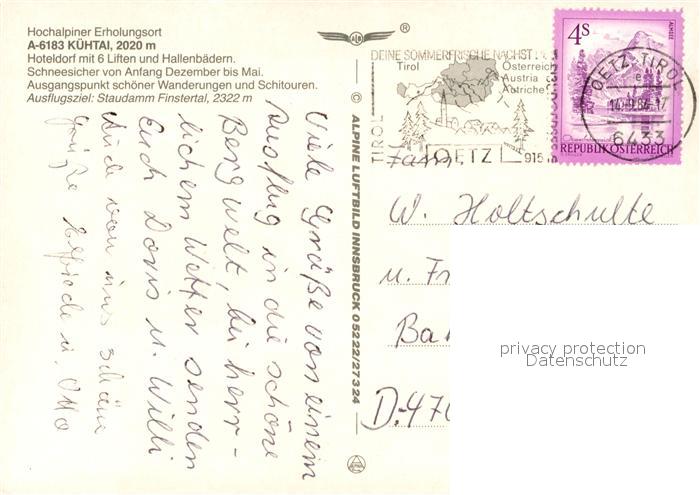 Hochalpiner Erholungsort
A-6183 KÜHTAI, 2020 m
Hoteldorf mit 6 Liften und Hallenbädern.
Schneesicher von Anfang Dezember bis Mai.
Ausgangspunkt schöner Wanderungen und Schitouren.
Ausflugsziel: Staudamm Finstertal, 2322 m
Viele Grüße von einem
Ausflug in die schöne
Bergwelt, bei herr-
lichem Wetter senden
Euch Doris u. Willi
Auch von uns schöne
Grüße Elfriede u. Otto
ALPINE
®
© ALPINE LUFTBILD INNSBRUCK 05222/27324
DEINE SOMMERFRISCHE NÄCHST
Tirol
Österreich
Austria
Autriche
TIROL
OETZ
915
4S
ALMSEE
REPUBLIK ÖSTERREICH
OETZ, TIROL
e
6433
Fam.
W. Holtschulte
u. Fr
Ba
D-470
privacy protection
Datenschutz